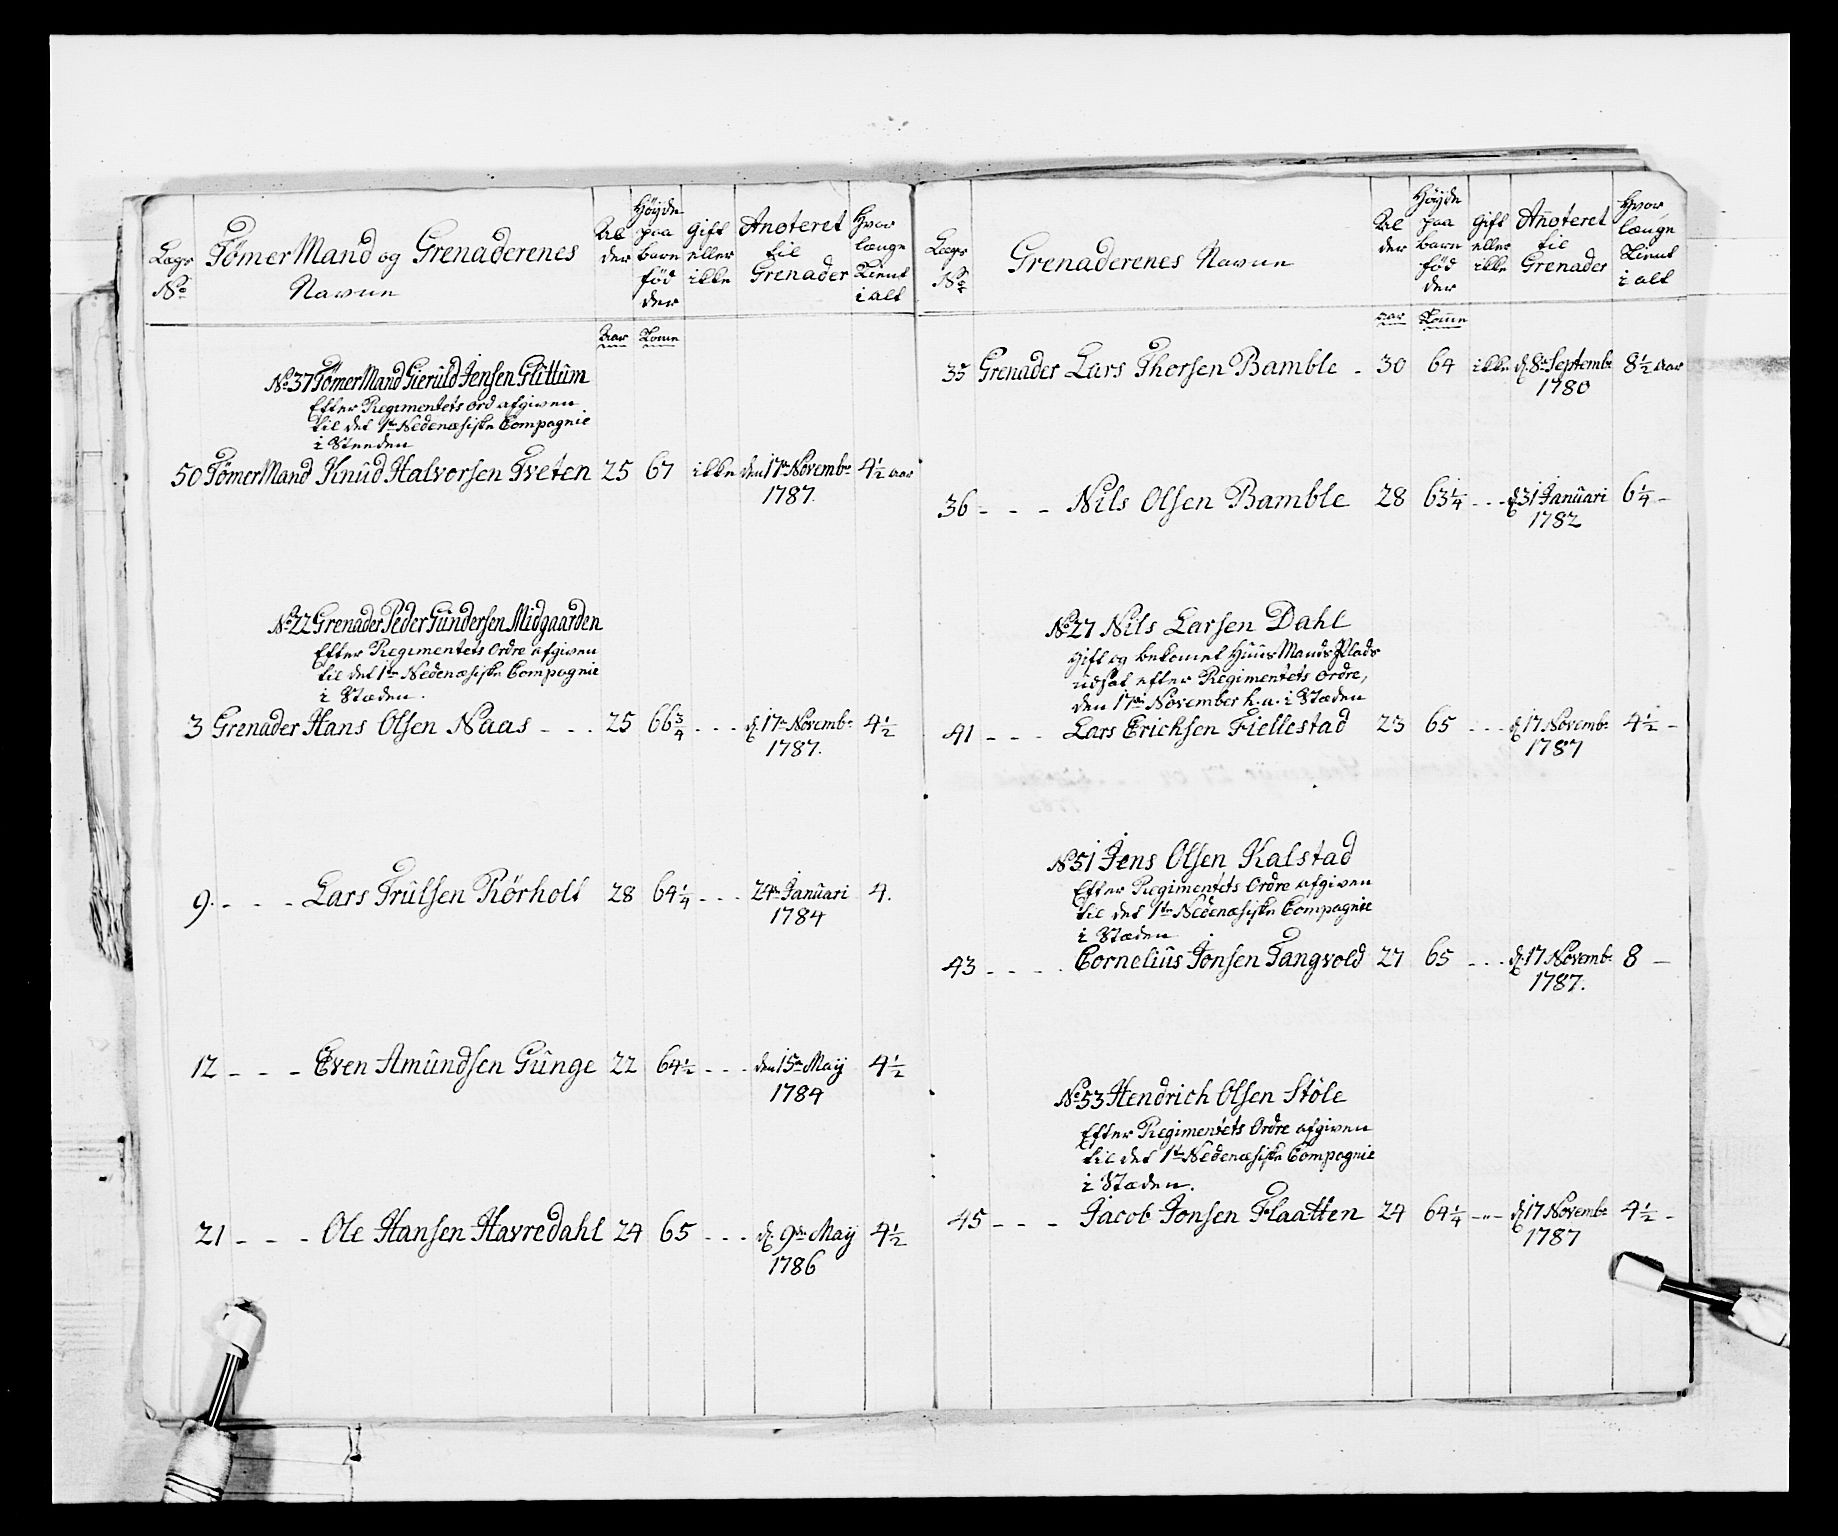 Lægs No
TömerMand og Grenaderenes
Navne
Al
der
Höyde
paa
bare
fød
der
Gift
eller
ikke
Anoteret
til
Grenader
Hvor
længe
Tient
i alt
Aar Tome
No 37 TömerMand Gieruld Jensen Glittum
Efter Regimentets Ord afgiven
til det 1te Nedenæsiske Compagnie
i Steeden
50 TömerMand Knud Halvorsen Tveten 25 67 ikke den 17de Novembr 4½ aar
1787.
No 22 Grenader Peder Gundersen Midgaarden
Efter Regimentets Ordre afgiven
til det 1te Nedenæsiske Compagnie
i Stæden.
3 Grenader Hans Olsen Naas - - - 25 66¾ - - - d. 17de Novembr 4½
1787.
9. - - - Lars Trulsen Rörholt 28 64¼ - - - 24de Januari 4.
1784
12 - - - Even Amundsen Gunge 22 64½ - - - den 15de May 4½
1784
21 - - - Ole Hansen Havredahl 24 65 - - - d. 9de May 4½
1786
Lægs No
Grenaderenes Navne
Al
der
Höyde
paa
bare
fød
der
Gift
eller
ikke
Anoteret
til
Grenader
Hvor
længe
Tient
i alt
aar Tome
35 Grenader Lars Thorsen Bamble - 30 64 ikke d. 8de Septembr 8½ aar
1780
36 - - - Nils Olsen Bamble 28 63¼ - - - d. 31 Januari 6¼ -
1782
No 27 Nils Larsen Dahl
gift og bekomet HuusMands Plads
udsat efter Regimentets Ordre,
den 17de November h. a. i Stæden
41 - - - Lars Erichsen Fiellestad 23 65 - - - d. 17 Novembr 4½ -
1787
No 51 Jens Olsen Kalstad
Efter Regimentets Ordre afgiven
til det 1te Nedenæsiske Compagnie
i Stæden
43 - - - . Cornelius Jonsen Tangvold 27 65 - - - d. 17 Novembr 8 -
1787.
No 53 Hendrich Olsen Støle
Efter Regimentets Ordre afgiven
til det 1te Nedenæsiske Compagnie
i Stæden.
45 - - - Jacob Jonsen Flaatten 24 64¼ - - - d. 17 Novembr 4½ -
1787